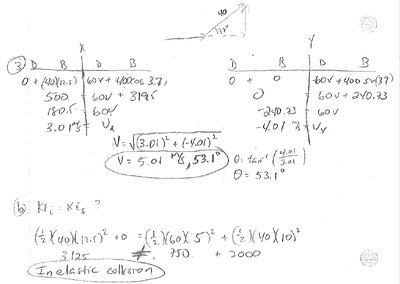 40
37°
X
Y
③
D B D B
D B D B
0 + (40)(12.5) 60v + 400cos 37
500 = 60v + 319.5
180.5 = 60v
3.01 m/s = Vx
0 + 0 60v + 400 sin(37)
0 = 60v + 240.73
-240.73 60v
-4.01 m/s Vy
V = √(3.01)² + (-4.01)²
V = 5.01 m/s, 53.1°
θ = tan⁻¹ (4.01/3.01)
θ = 53.1°
(b) KEi = KEf ?
(½)(40)(12.5)² + 0 = (½)(60)(5)² + (½)(40)(10)²
3125 ≠ 750 + 2000
Inelastic collision